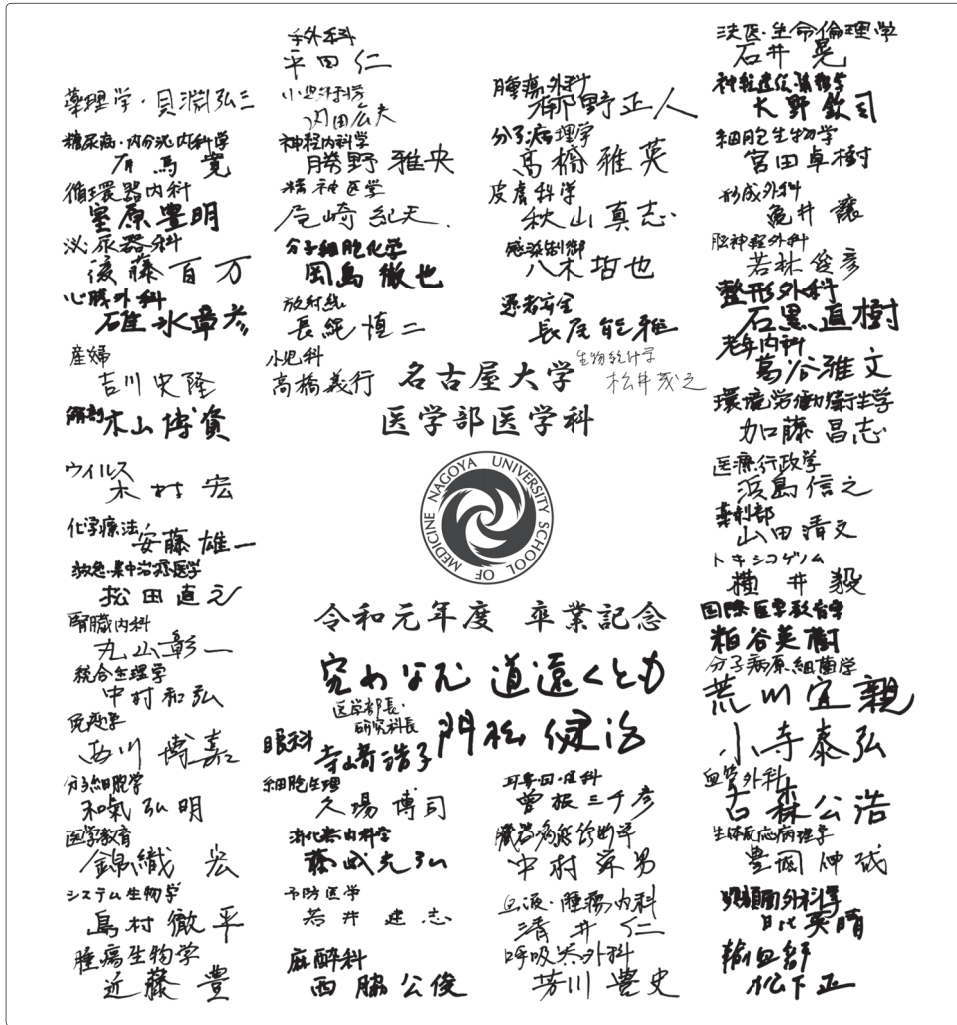 手外科
平田 仁
薬理学・貝淵弘三
糖尿病・内分泌内科学
有馬 寛
循環器内科
室原豊明
泌尿器科
後藤百万
心臓外科
碓氷章彦
産婦
吉川史隆
解剖 木山博資
ウイルス
木村 宏
化学療法 安藤雄一
救急・集中治療医学
松田直之
腎臓内科
丸山彰一
統合生理学
中村和弘
免疫学
西川博嘉
分子細胞学
和氣弘明
医学教育
錦織 宏
システム生物学
島村徹平
腫瘍生物学
近藤 豊
小児外科学
内田広夫
神経内科学
勝野雅央
精神医学
尾崎紀夫
分子細胞化学
岡島徹也
放射線
長縄慎二
小児科
高橋義行
腫瘍外科
梛野正人
分子病理学
高橋雅英
皮膚科学
秋山真志
感染制御
八木哲也
患者安全
長尾能雅
生物統計学
松井茂之
名古屋大学
医学部医学科
NAGOYA UNIVERSITY SCHOOL OF MEDICINE
令和元年度 卒業記念
究めなむ 道遠くとも
医学部長・
研究科長
門松健治
眼科 寺﨑浩子
細胞生理
久場博司
消化器内科学
藤城光弘
予防医学
若井建志
麻酔科
西脇公俊
耳鼻咽喉科
曾根三千彦
臓器病態診断学
中村栄男
血液・腫瘍内科
清井 仁
呼吸器外科
芳川豊史
法医・生命倫理学
石井 晃
神経遺伝情報学
大野欽司
細胞生物学
宮田卓樹
形成外科
亀井 譲
脳神経外科
若林俊彦
整形外科
石黒直樹
老年内科
葛谷雅文
環境労働衛生学
加藤昌志
医療行政学
浜島信之
薬剤部
山田清文
トキシコゲノム
横井 毅
国際医学教育学
粕谷英樹
分子病原細菌学
荒川宜親
小寺泰弘
血管外科
古森公浩
生体反応病理学
豊國伸哉
顎顔面外科学
日比英晴
輸血部
松下 正